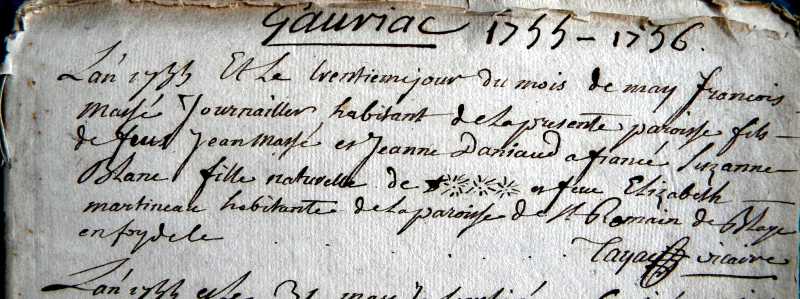 Gauriac 1755 - 1756.
Lan 1755 Et Le trentieme jour du mois de may francois
Massé Journallier habitant de Lapresente paroisse fils
de feus Jean Massé et Jeanne Daniaud a fiancé Suzanne
Blanc fille naturelle de et feue Elizabeth
martineau habitante de Laparoisse de St Romain de Blaye
en foy de Le
vicaire
Lan 1755 et Le 31 may